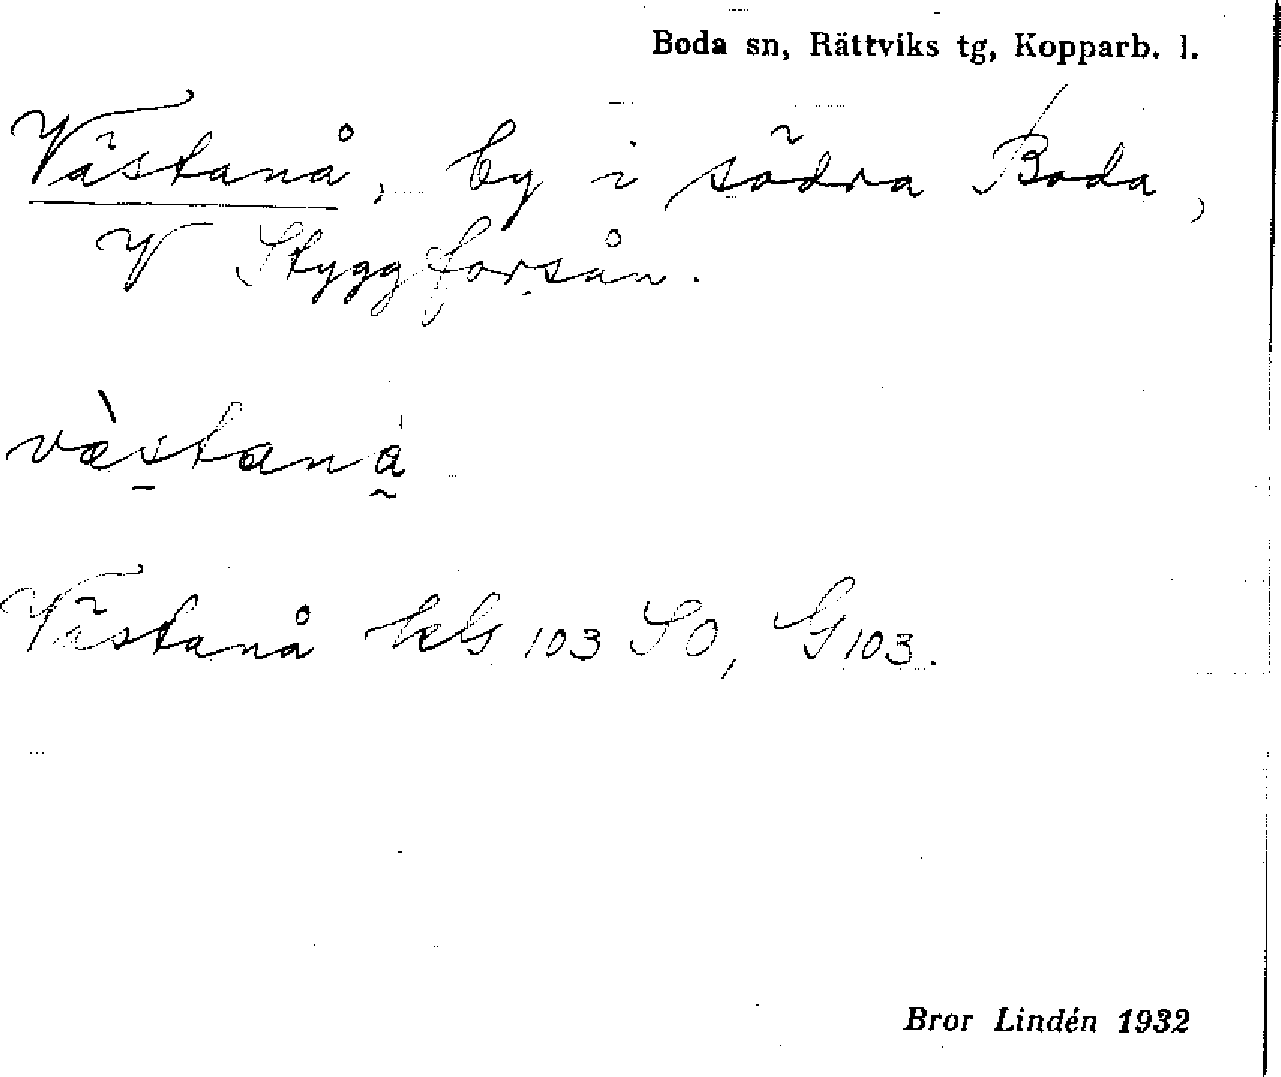 Boda sn, Rättviks tg, Kopparb. l.
Västanå, by i södra Boda,
V Styggforsån.
væ̀stana
Västanå kbl 103 SO, G 103.
Bror Lindén 1932